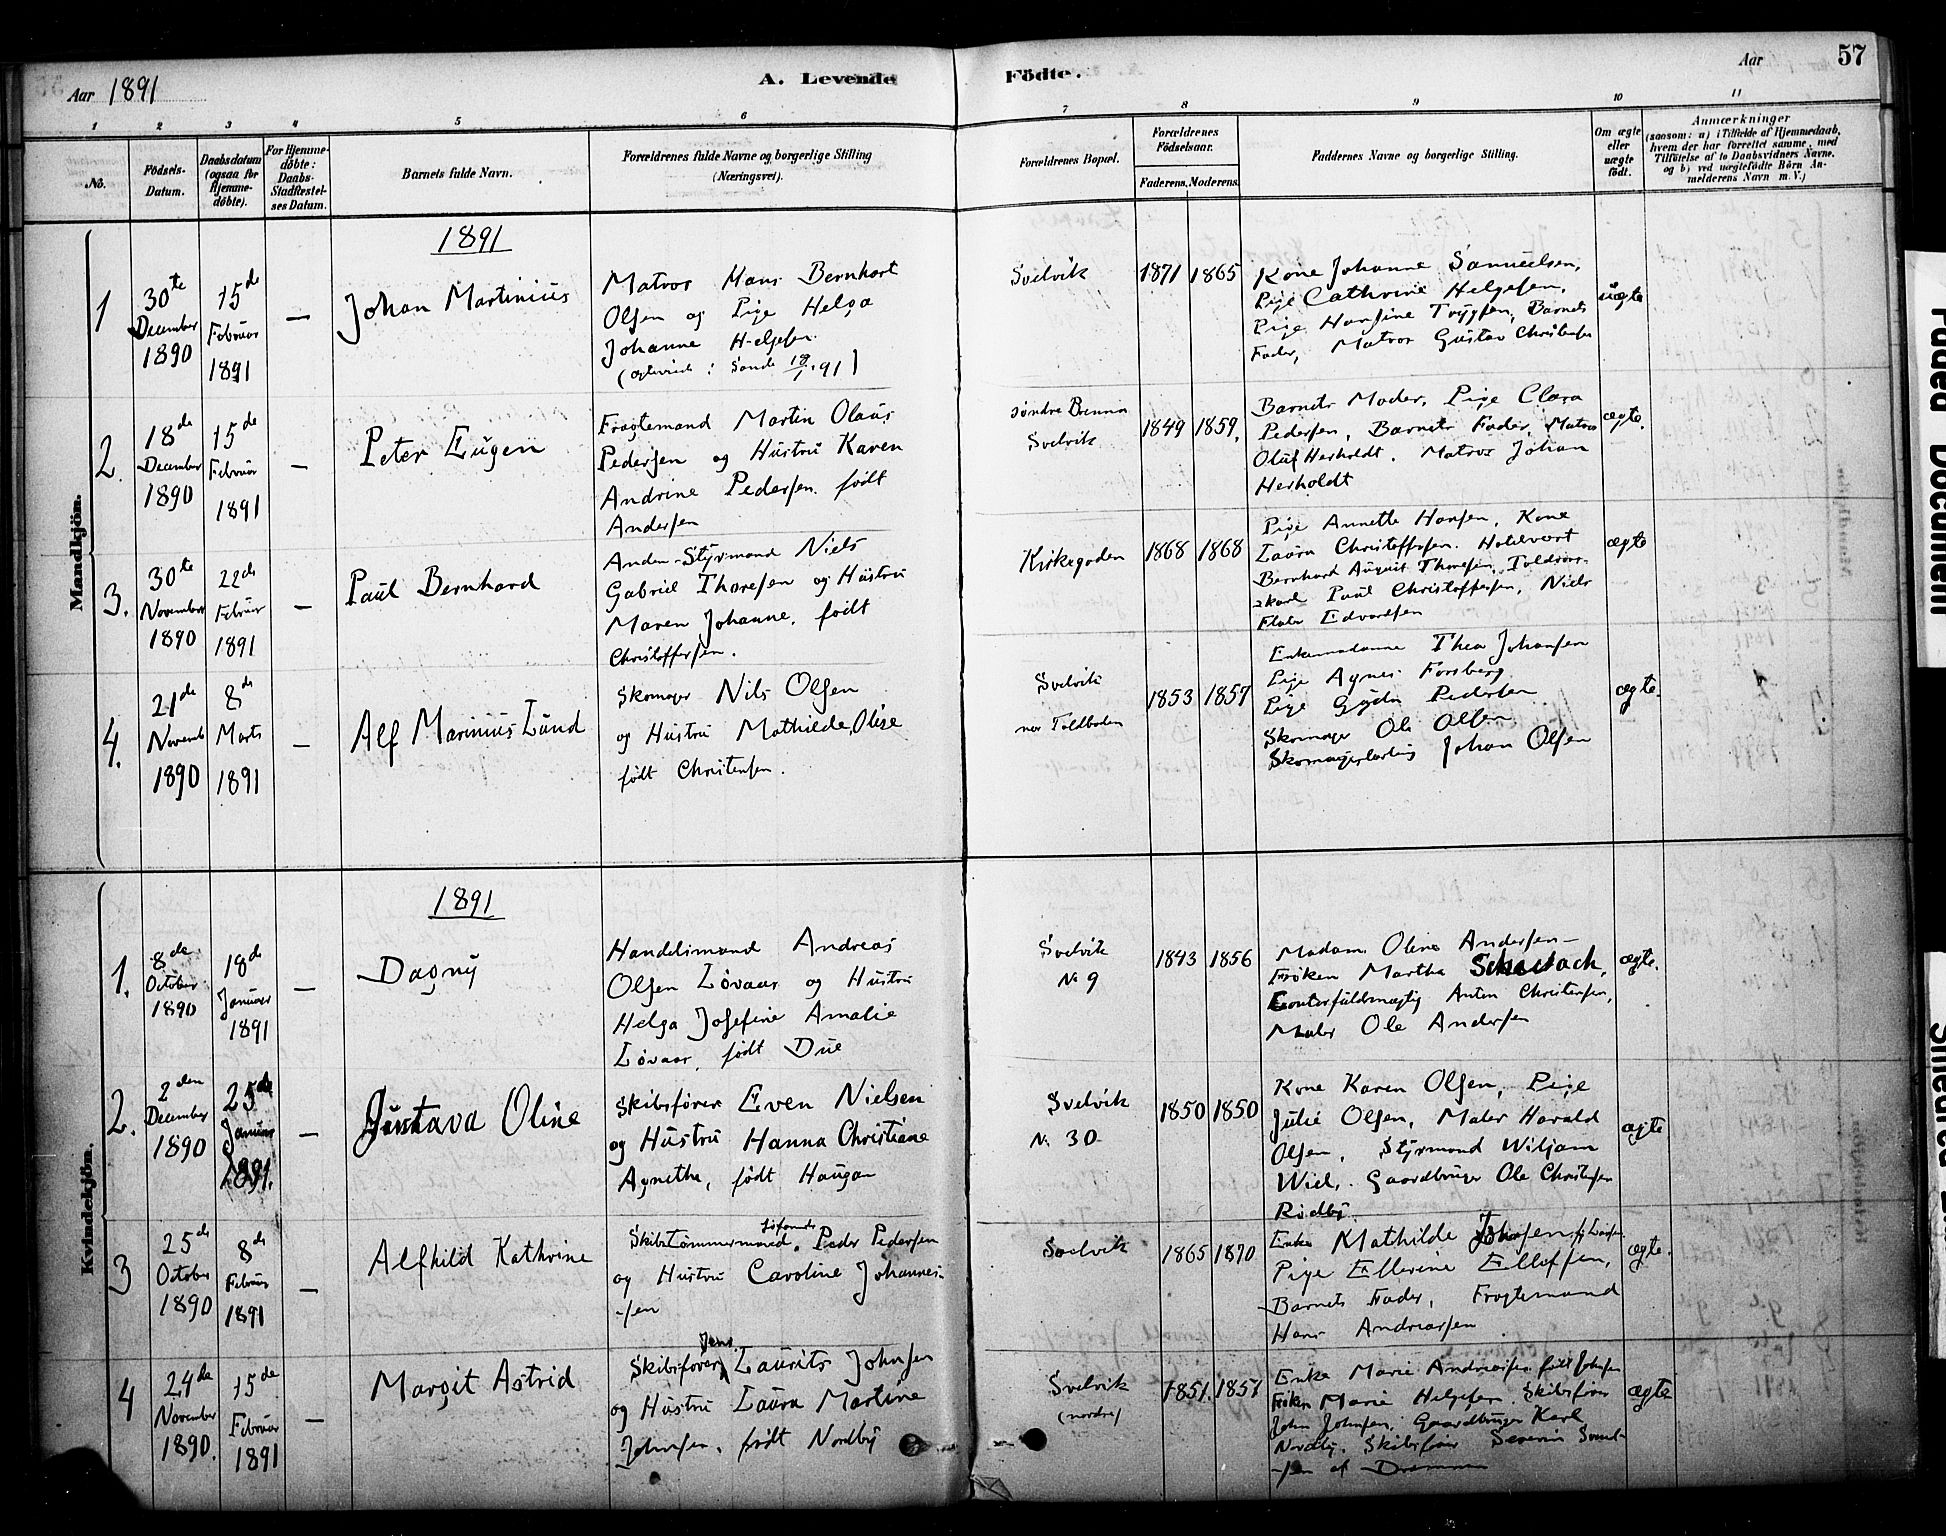 Aar 1891
A. Levende
Födte.
Aar
57
1 2 3 4 5 6 7 8 9 10 11
No.
Födsels-
Datum.
Daabsdatum
(ogsaa for
Hjemme-
döbte).
For Hjemme-
döbte:
Daabs-
Stadfæstel-
ses Datum.
Barnets fulde Navn.
Forældrenes fulde Navne og borgerlige Stilling
(Næringsvei).
Forældrenes Bopæl.
Forældrenes
Födselsaar.
Faderens. Moderens.
Faddernes Navne og borgerlige Stilling.
Om ægte
eller
uægte
födt.
Anmærkninger
(saasom: a) i Tilfælde af Hjemmedaab,
hvem der har forrettet samme, med
Tilföielse af to Daabsvidners Navne,
og b) ved uægtefödte Börn An-
melderens Navn m. V.)
Mandkjön.
1891
1
30te
December
1890
15de
Februar
1891
—
Johan Martinius
Matros Hans Bernhart
Olsen og Pige Helga
Johanne Helgesen.
(ægteviede: Sande 18/1 91)
Svelvik
1871 1865
Kone Johanne Samuelsen,
Pige Cathrine Helgesen,
Pige Hansine Tryggsen, Barnets
Fader, Matros Gustav Christensen
uægte
2.
18de
December
1890
15de
Februar
1891
—
Peter Eugen
Fragtemand Martin Olaus
Pedersen og Hustru Karen
Andrine Pedersen født
Andersen
søndre Brenna
Svelvik
1849 1859.
Barnets Moder, Pige Clara
Pedersen, Barnets Fader, Matros
Oluf Herholdt, Matros Johan
Herholdt
ægte.
3.
30te
November
1890
22de
Februar
1891
—
Paul Bernhard
Anden-Styrmand Niels
Gabriel Thoresen og Hustru
Maren Johanne, født
Christoffersen.
Kirkegaden
1868 1868
Pige Annette Hansen, Kone
Laura Christoffersen.
Bernhard August Thoresen,
Paul Christoffersen, Niels
Edvardsen
ægte
4.
21de
Novemb
1890
8de
Marts
1891
—
Alf Marinius Lund
Skomager Nils Olsen
og Hustru Mathilde Olise
født Christensen.
Svelvik
nær Toldboden
1853 1857
Enkemadame Thea Johansen
Pige Agnes Forsberg
Pige Gyda Pedersen
Skomager Ole Olsen
Skomagerlærling Johan Olsen
ægte.
Kvindekjön.
1891
1.
8de
October
1890
18de
Januar
1891
—
Dagny
Handelsmand Andreas
Olsen Løvaas og Hustru
Helga Josefine Amalie
Løvaas, født Due
Svelvik
No 9
1843 1856
Madam Oline Andersen —
Frøken Martha
Contorfuldmægtig Anton Christensen,
Maler Ole Andersen
ægte.
2.
2den
December
1890
25de
Januar
1891.
—
Gustava Oline
Skibsfører Even Nielsen
og Hustru Hanna Christiane
Agnethe, født Haugan
Svelvik
No 30
1850 1850
Kone Karen Olsen, Pige
Julie Olsen, Maler Harald
Olsen, Styrmand Wiljam
Wiel, Gaardbruger Ole Christensen
Rødby.
ægte
3
25de
October
1890
8de
Februar
1891
—
Alfhild Kathrine
Skibstømmermand, Peder Pedersen
og Hustru Caroline Johannes-
-sen
Svelvik
1865 1870
Enke Mathilde Johnsen
Pige Ellevine Ellefsen,
Barnets Fader, Fragtemand
Hans Andreassen
ægte.
4
24de
November
1890.
15de
Februar
1891
—
Margit Astrid
Skibsfører Jens Laurits Johnsen
og Hustru Laura Martine
Johnsen, født Nordby
Svelvik
(nordre)
1851. 1857
Enke Marie Andreassen født Johnsen
Frøken Marie Helgesen. Skibsfører
John Johnsen, Gaardbruger Karl
Nordby, Skibsfører Severin
-sen af Drammen
ægte
Faded Document